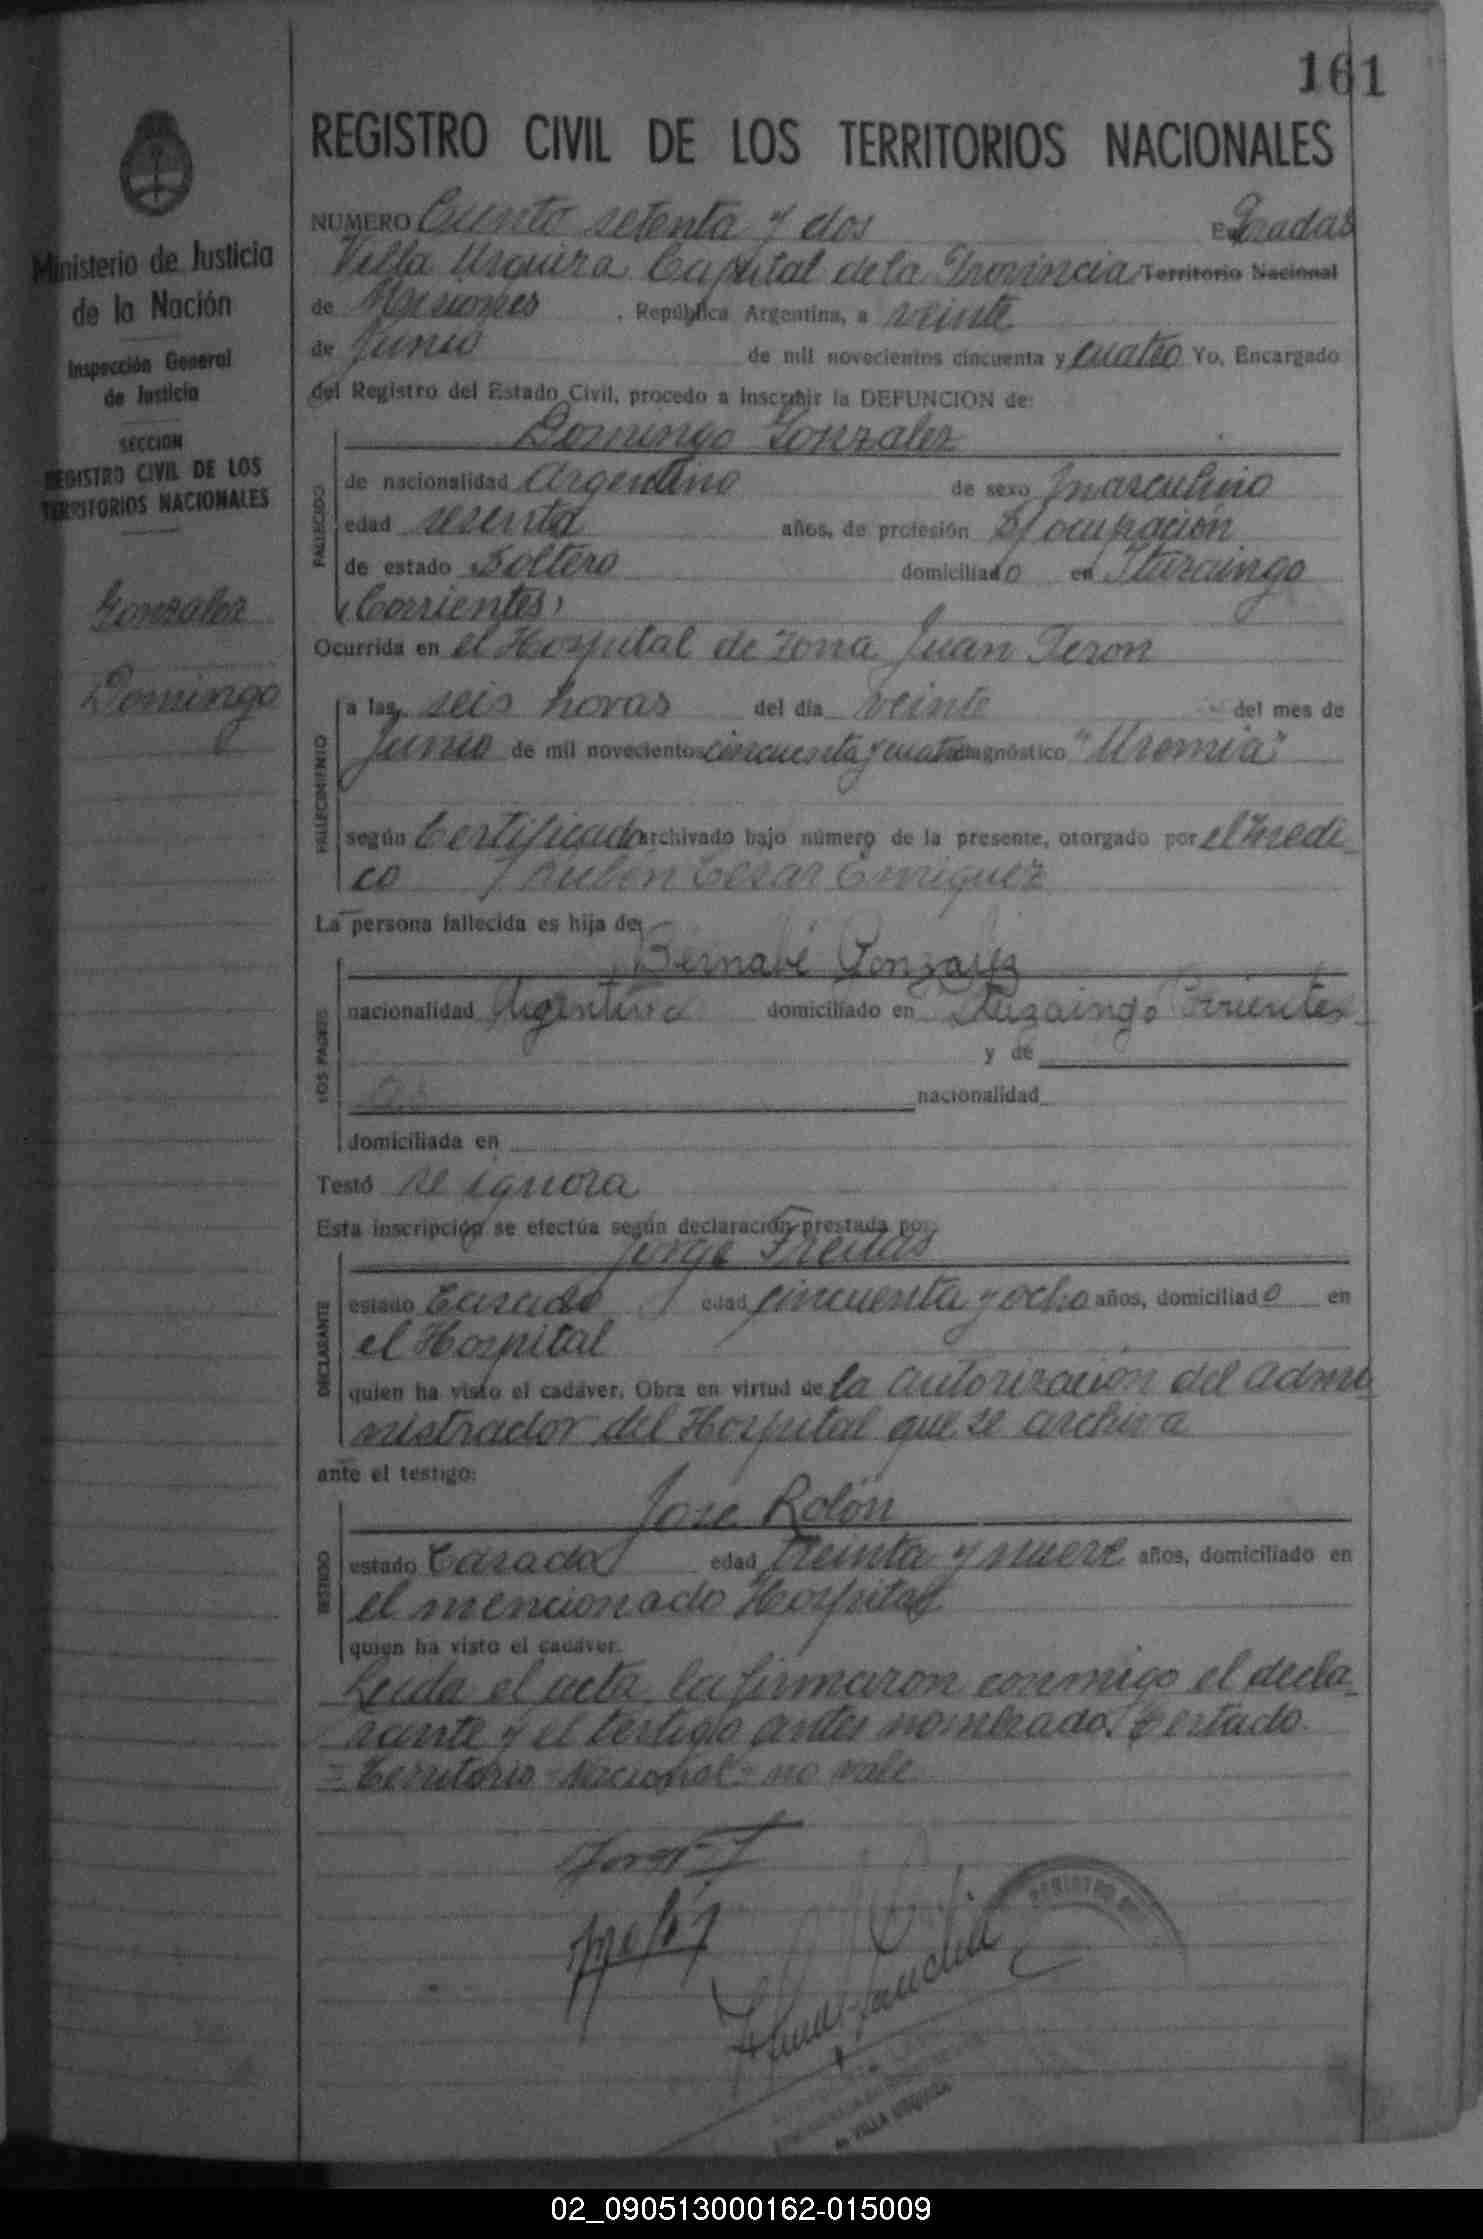 161
REGISTRO CIVIL DE LOS TERRITORIOS NACIONALES
Ministerio de Justicia
de la Nación
Inspección General
de Justicia
SECCION
REGISTRO CIVIL DE LOS
TERRITORIOS NACIONALES
Gonzalez
Domingo
NUMERO Ciento setenta y dos En Posadas
Villa Urquiza Capital de la Provincia Territorio Nacional
de Misiones, República Argentina, a veinte
de Junio de mil novecientos cincuenta y cuatro Yo, Encargado
del Registro del Estado Civil, procedo a inscribir la DEFUNCION de:
Domingo Gonzalez
FALLECIDO
de nacionalidad Argentino de sexo masculino
edad sesenta años, de profesión S/ ocupación
de estado Soltero domiciliado en Ituzaingo
(Corrientes)
Ocurrida en el Hospital de Zona Juan Peron
FALLECIMIENTO
a las seis horas del día veinte del mes de
Junio de mil novecientos cincuenta y cuatro diagnóstico "Uremia"
según Certificado archivado bajo número de la presente, otorgado por el médi
co Rubén Cesar Enriquez
La persona fallecida es hija de:
Bernabé Gonzalez
LOS PADRES
nacionalidad Argentina domiciliado en Ituzaingo Corrientes
y de
nacionalidad
domiciliada en
Testó se ignora
Esta inscripción se efectúa según declaración prestada por:
Jorge Freitas
DECLARANTE
estado Casado edad cincuenta y ocho años, domiciliado en
el Hospital
quien ha visto el cadáver. Obra en virtud de la autorización del admi
nistrador del Hospital que se archiva
ante el testigo:
José Rolón
TESTIGO
estado Casado edad treinta y nueve años, domiciliado en
el mencionado Hospital
quien ha visto el cadáver.
Leida el acta, la firmaron conmigo el decla-
rante y el testigo antes nombrado. Testado
= Territorio - Nacional = no vale
REGISTRO
de VILLA URQUIZA
02_090513000162-015009